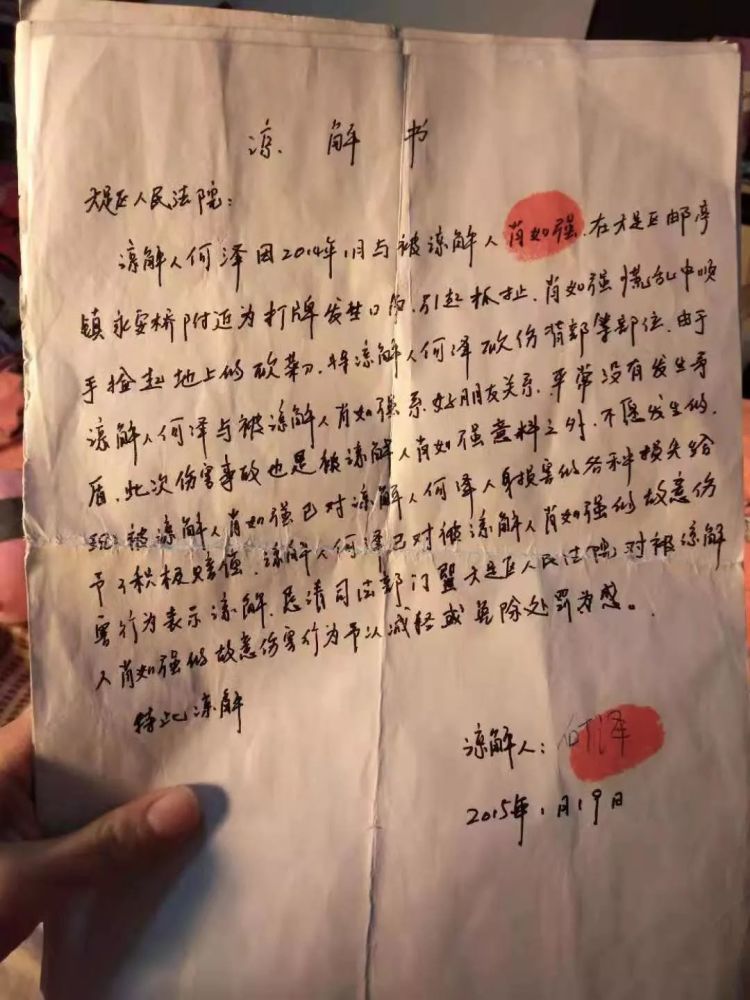 谅解书
大足区人民法院：
谅解人何泽因2014年1月与被谅解人肖如强,在大足区邮亭
镇永安桥附近为打牌发生口角,引起抓扯,肖如强慌乱中顺
手捡起地上的砍菜刀,将谅解人何泽砍伤背部等部位,由于
谅解人何泽与被谅解人肖如强系好朋友关系,平常没有发生矛
盾,此次伤害事故也是被谅解人肖如强意料之外,不愿发生的,
现被谅解人肖如强已对谅解人何泽人身损害的各种损失给
予了积极赔偿,谅解人何泽已对被谅解人肖如强的故意伤
害行为表示谅解,恳请司法部门暨大足区人民法院对被谅解
人肖如强的故意伤害行为予以减轻或免除处罚为感。
特此谅解
谅解人：何泽
2015年1月19日